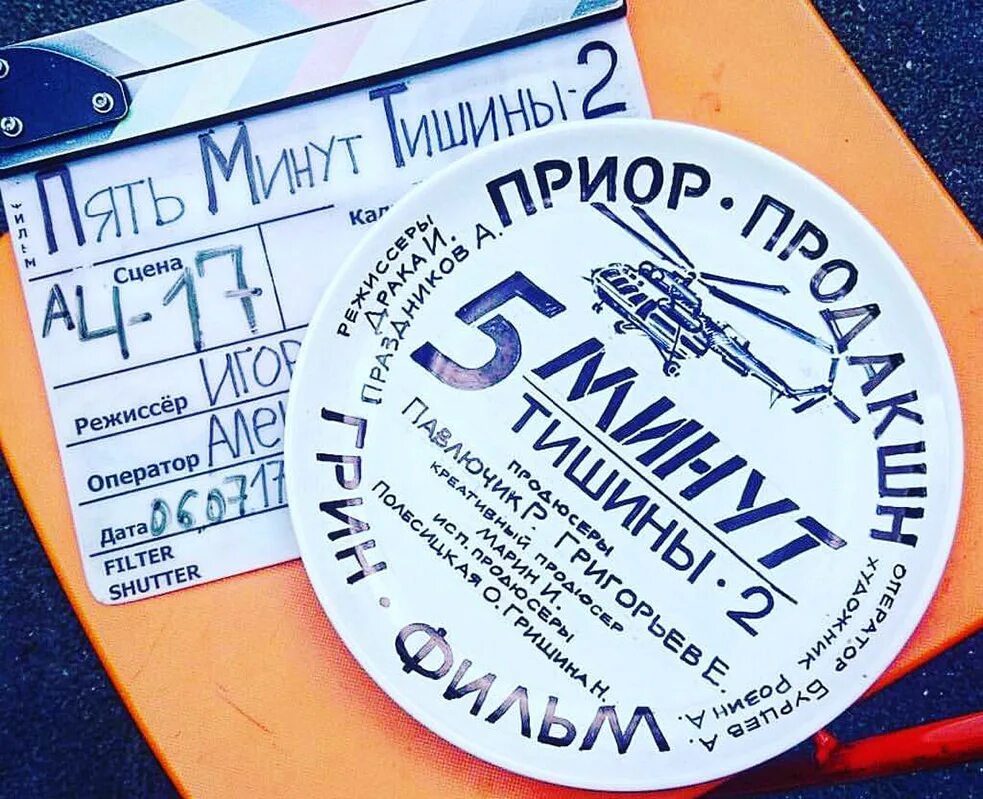 ФИЛЬМ
Пять Минут Тишины-2
Сцена
А 4-17
Режиссёр
Оператор
Дата 06.07.17
FILTER
SHUTTER
ПРИОР · ПРОДАКШН
РЕЖИССЕРЫ
ДРАКА И.
ПРАЗДНИКОВ А.
5 МИНУТ
ТИШИНЫ · 2
ПРОДЮСЕРЫ
ПАВЛЮЧИК Р. ГРИГОРЬЕВ Е.
КРЕАТИВНЫЙ ПРОДЮСЕР
МАРИН И.
ИСП. ПРОДЮСЕРЫ
ПОЛЕСИЦКАЯ О. ГРИШИНА Н.
ОПЕРАТОР БУРЦЕВ А.
ХУДОЖНИК РОЗИН А.
ГРИН · ФИЛЬМ